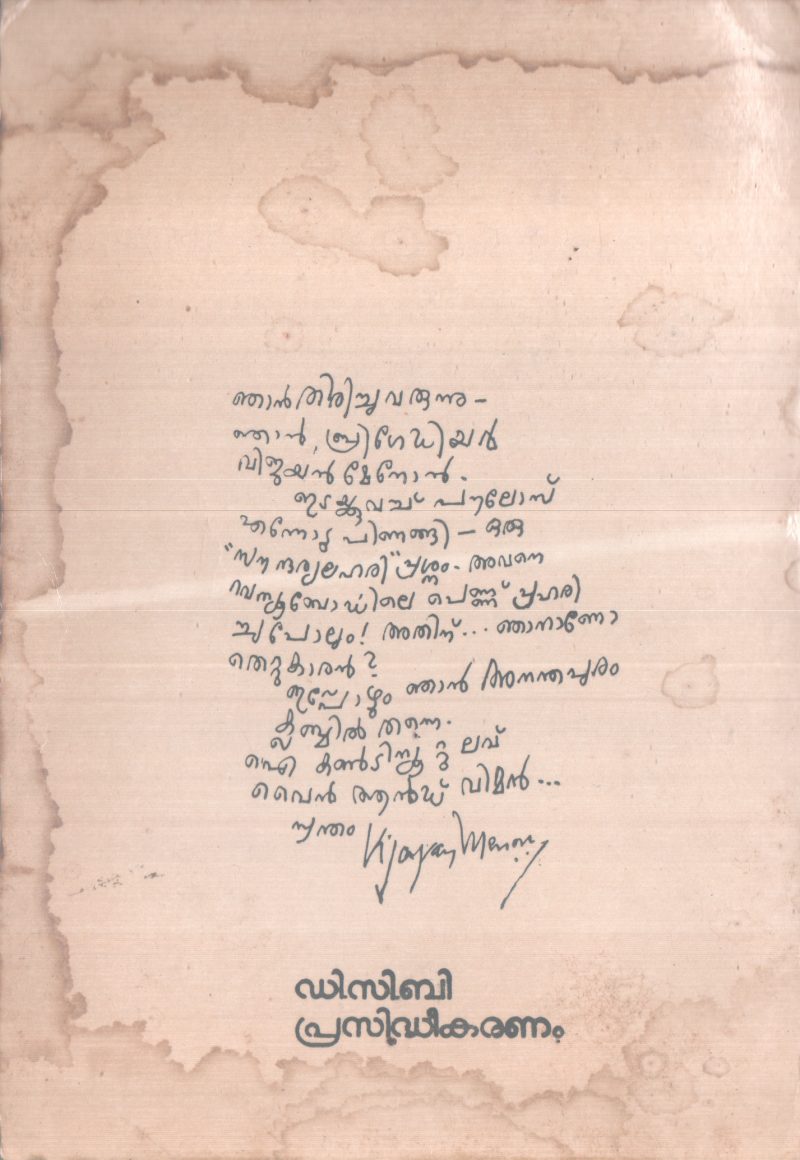 ഞാൻ തിരിച്ചുവരുന്നു –
ഞാൻ, ബ്രിഗേഡിയർ
വിജയൻ മേനോൻ.
ഇടയ്ക്കുവച്ച് പൗലോസ്
എന്നോടു പിണങ്ങി – ഒരു
"സൗന്ദര്യലഹരി" പ്രശ്നം. അവനെ
പെണ്ണ് പ്രഹരി
ച്ചുപോലും! അതിന്... ഞാനാണോ
തെറ്റുകാരൻ?
ഇപ്പോഴും ഞാൻ അനന്തപുരം
ക്ലബ്ബിൽ തന്നെ.
ഐ കൺടിന്യൂ ടു ലവ്
വൈൻ ആൻഡ് വിമൻ...
സ്വന്തം Vijayan Menon
ഡിസിബി
പ്രസിദ്ധീകരണം